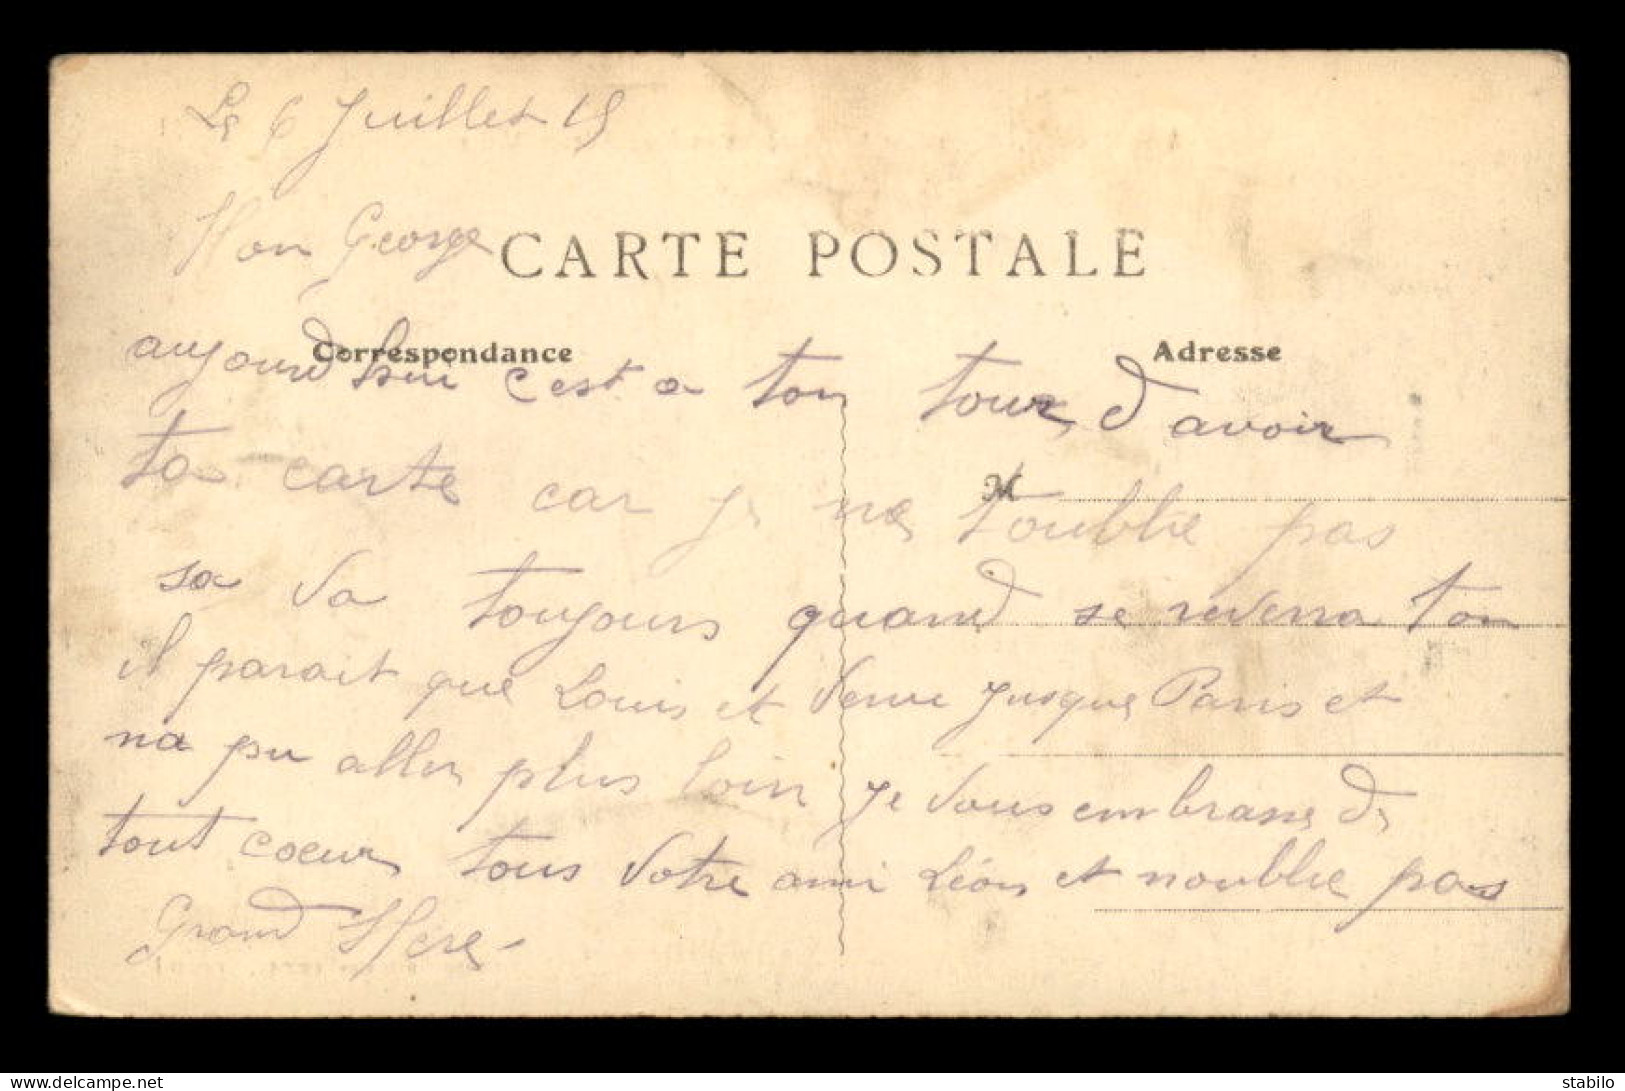 Le 6 Juillet 15
Mon George
CARTE POSTALE
Correspondance
Adresse
aujourd hui c est a ton tour d avoir
ta carte car je ne toublie pas
M
sa va toujours quand se revera ton
il parait que Louis et Venu jusque Paris et
na pu aller plus loin je vous embrasse de
tout coeur tous votre ami Léon et noublie pas
Grand Mere
delcampe.net
stabilo